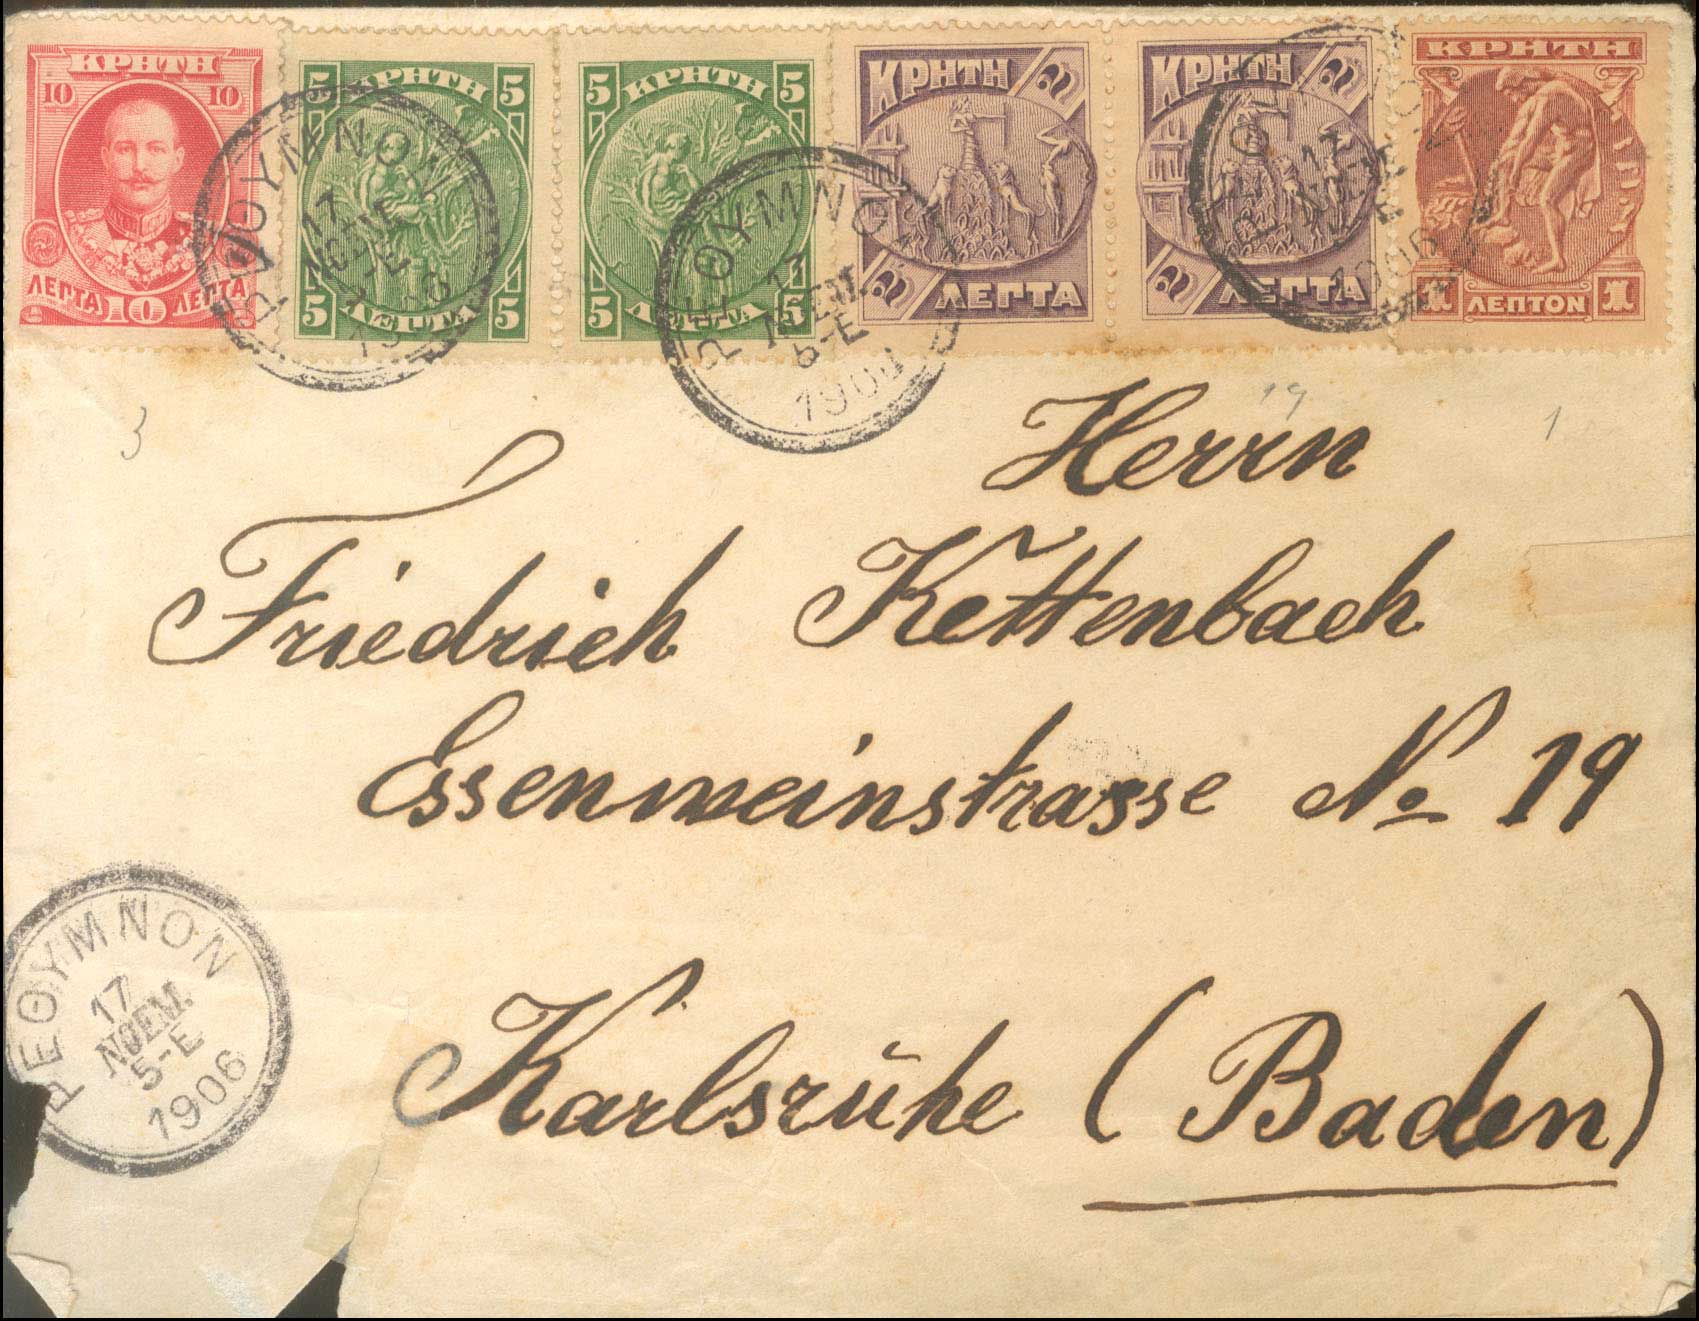 ΚΡΗΤΗ
10 10
ΛΕΠΤΑ 10 ΛΕΠΤΑ
5 ΚΡΗΤΗ 5
5 ΛΕΠΤΑ 5
5 ΚΡΗΤΗ 5
5 ΛΕΠΤΑ 5
ΚΡΗΤΗ 2
2 ΛΕΠΤΑ
ΚΡΗΤΗ 2
2 ΛΕΠΤΑ
ΚΡΗΤΗ
1 ΛΕΠΤΟΝ 1
ΡΕΘΥΜΝΟΝ
17
ΝΟΕΜ.
1906
ΡΕΘΥΜΝΟΝ
17
ΝΟΕΜ.
5-Ε
1906
17
ΝΟΕΜ.
1906
3
19
1
Herrn
Friedrich Kettenbach
Essenweinstrasse No 19
Karlsrŭhe (Baden)
ΡΕΘΥΜΝΟΝ
17
ΝΟΕΜ.
5-Ε
1906